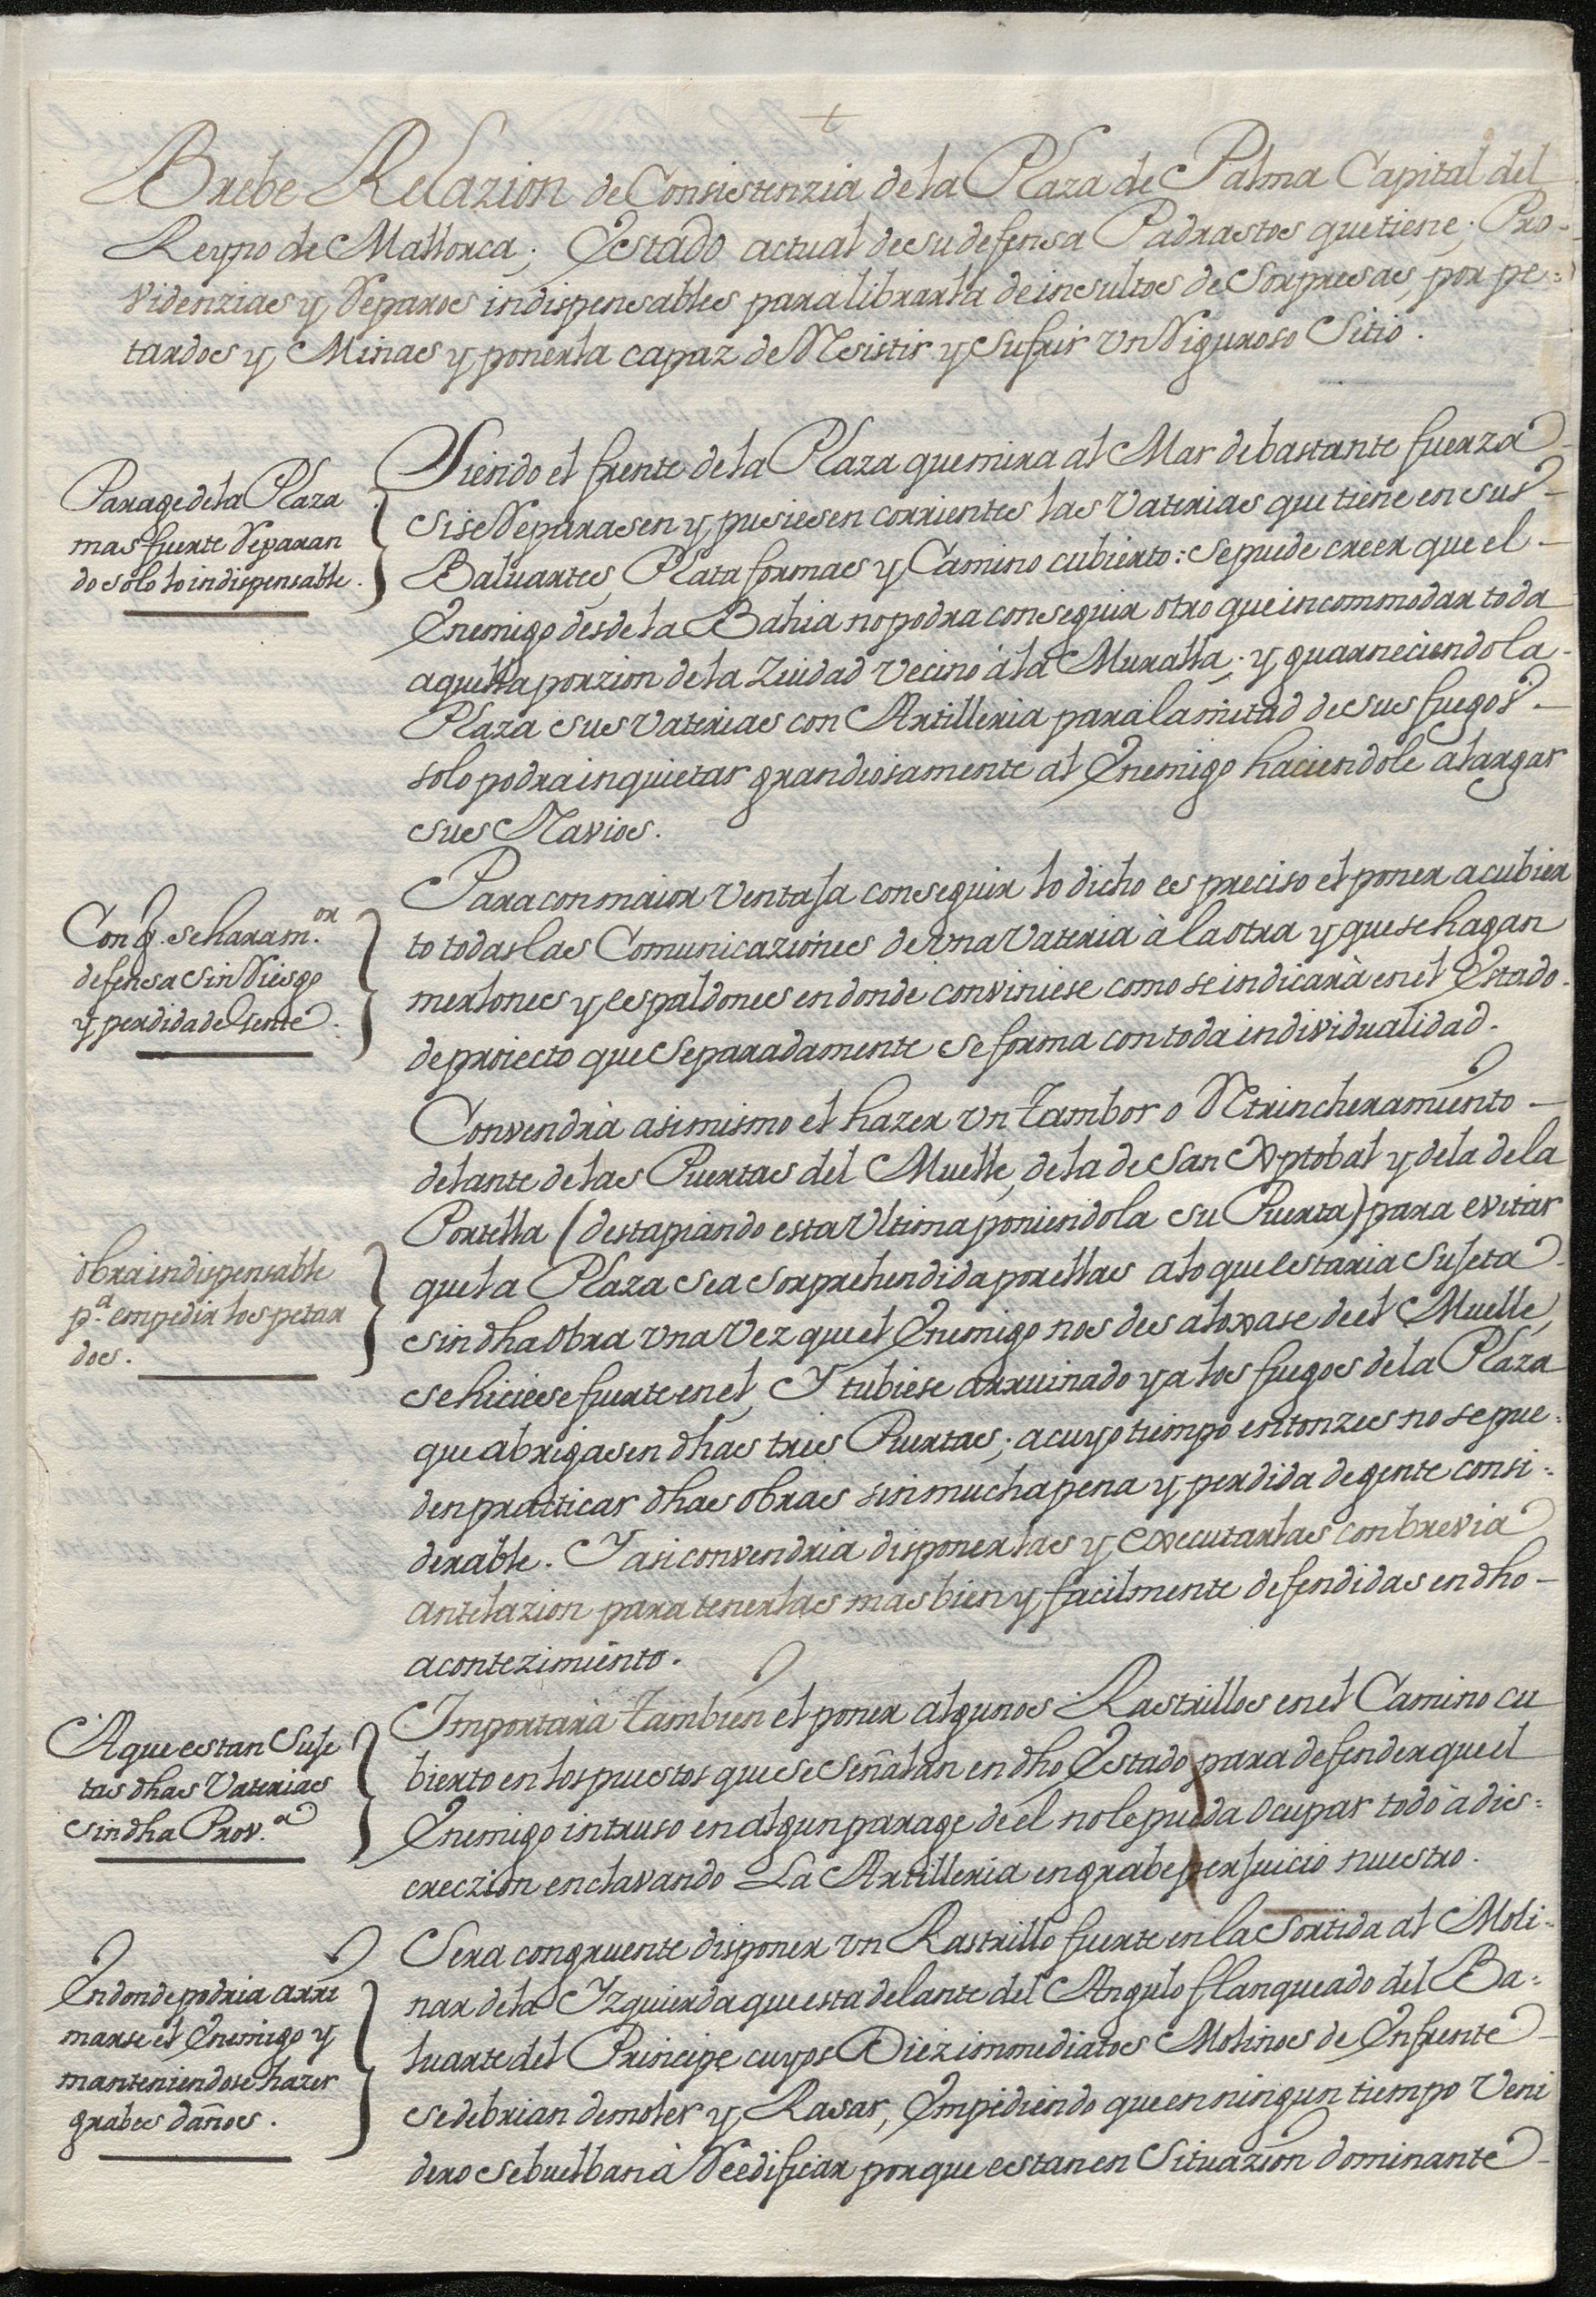 +
Brebe Relazion de Consistenzia de la Plaza de Palma Capital del
Reyno de Mallorca; Estado actual de su defensa Padrastos que tiene; Pro-
videnzias y Reparos indispensables para librarla de insultos de Sorpresas, por pe=
tardos y Minas y ponerla capaz de Resistir y Sufrir vn Riguroso Sitio.
Parage de la Plaza
mas fuerte Reparan
do solo lo indispensable.
Siendo el frente de la Plaza que mira al Mar de bastante fuerza
si se Reparasen y pusiesen corrientes las Vaterias que tiene en sus
Baluartes, Plata formas y Camino cubierto: se puede creer que el
Enemigo desde la Bahia no podra conseguir otro que incommodar toda
aquella porzion de la Ziudad Vecino à la Muralla; y guarneciendo la
Plaza sus Vaterias con Artilleria para la mitad de sus fuegos
solo podra inquietar grandiosamente al Enemigo haciendole alargar
sus Navios.
Con q. se hara m.or
defensa sin Riesgo
y perdida de Jente.
Para con maior Ventaja conseguir lo dicho es preciso el poner a cubier
to todas las Comunicaziones de vna Vateria à la otra y que se hagan
merlones y espaldones en donde conviniese como se indicarà en el Estado
de proiecto que Separadamente se forma con toda individualidad.
Convendrà asimismo el hazer vn Tambor o Retrincheramiento
delante de las Puertas del Muelle, de la de San Xptobal y de la de la
Portella (destapiando esta Vltima poniendola su Puerta) para evitar
que la Plaza sea sorprehendida por ellas a lo que estaria Sujeta
sin dha Obra vna Vez que el Enemigo nos desaloxase de el Muelle,
se hiciese fuerte en el, Y tubiese arruinado ya los fuegos de la Plaza
que abrigasen dhas tres Puertas; a cuyo tiempo entonzes no se pue=
den practicar dhas obras sin mucha pena y perdida de gente consi=
derable. Y asi convendria disponerlas y executarlas con brevia
antelazion para tenerlas mas bien y facilmente defendidas en dho
acontezimiento.
obra indispensable
p.a empedir los petar
dos.
Importarà Tambien el poner algunos Rastrillos en el Camino cu
bierto en los puestos que se Señalan en dho Estado para defender que el
Enemigo intruso en algun parage de èl no le pueda Ocupar todo à dis=
creczion enclavando La Artilleria en grabe perjuicio nuestro.
A que estan Suje
tas dhas Vaterias
sin dha Prov.a
Sera congruente disponer vn Rastrillo fuerte en la Sortida al Moli=
nar de la Izquierda que esta delante del Angulo flanqueado del Ba=
luarte del Principe cuyos Diez immediatos Molinos de Enfrente
se debrian demoler y Rasar, Empidiendo que en ningun tiempo Veni
dero se buelban à Reedificar porque estan en Situazion dominante
En donde podria arri
marse el Enemigo y
manteniendose hazer
grabes daños.